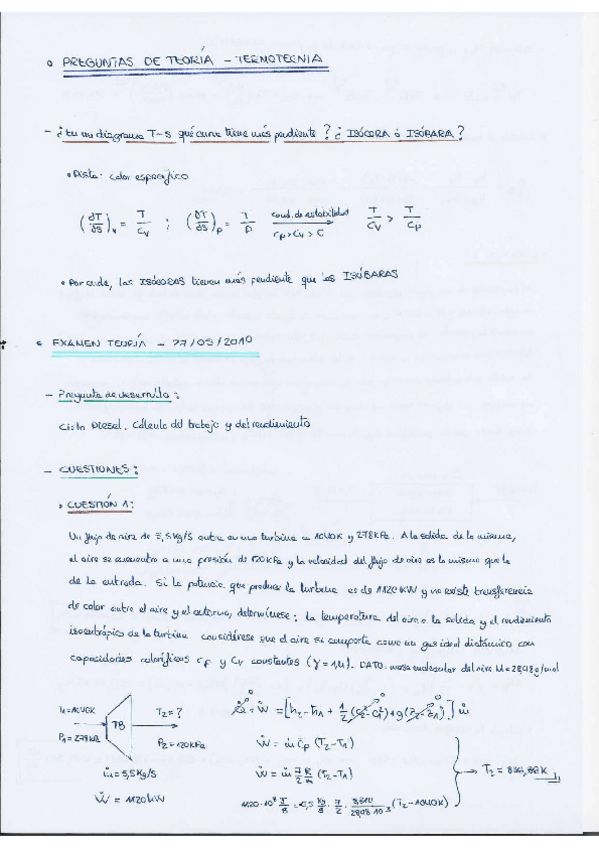 ° PREGUNTAS DE TEORÍA - TERMOTECNIA
- ¿En un diagrama T-S qué curva tiene más pendiente? ¿ISÓCORA ó ISÓBARA?
• Pista: Calor específico
(∂T/∂S)v = T/Cv ; (∂T/∂S)p = T/ cond. de estabilidad Cp>Cv>C T/Cv > T/Cp
• Por ende, las ISÓCORAS tienen más pendiente que las ISÓBARAS
• EXAMEN TEORÍA - 27/05/2010
- Pregunta de desarrollo:
Ciclo Diesel. Cálculo del trabajo y del rendimiento
- CUESTIONES:
• CUESTIÓN 1:
Un flujo de aire de 5,5kg/s entra en una turbina a 1040K y 278KPa. A la salida de la misma,
el aire se encuentra a una presión de 120KPa y la velocidad del flujo de aire es la misma que la
de la entrada. Si la potencia que produce la turbina es de 1120KW y no existe transferencia
de calor entre el aire y el entorno, determínese: la temperatura del aire a la salida y el rendimiento
isoentrópico de la turbina considérese que el aire se comporta como un gas ideal diatómico con
capacidades caloríficas Cp y Cv constantes (γ=1,4). DATO: masa molecular del aire M=28,98g/mol
T1=1040K TB T2=?
P1=278KPa P2=120KPa
ṁ=5,5Kg/s
Ẇ=1120KW
Q̇ + Ẇ = [h2-h1 + 1/2(c2²-c1²)+g(z2-z1)] ṁ
Ẇ = ṁ Cp (T2-T1)
Ẇ = ṁ 7/2 R/m (T2-T1)
→ T2 =